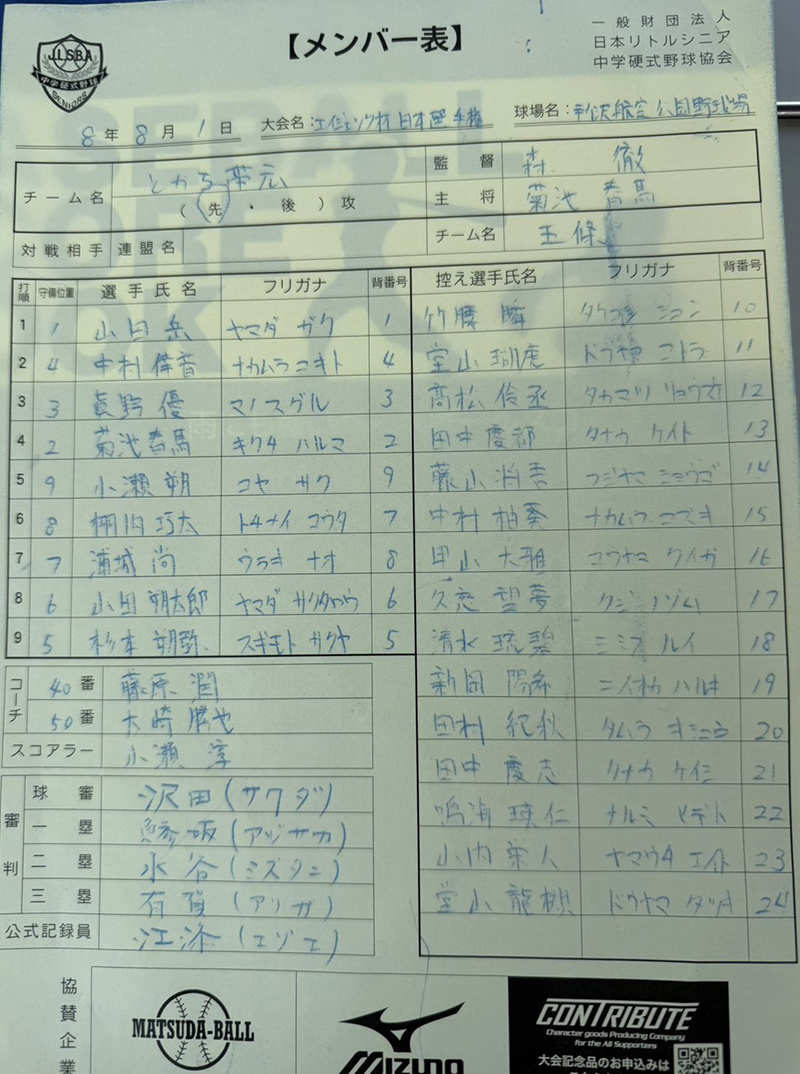 JLSBA
中学硬式野球
SENIORS
【メンバー表】
一般財団法人
日本リトルシニア
中学硬式野球協会
8年 8月 1日 大会名: 日本選手権 球場名: 航空公園野球場
チーム名 とかち帯広
(先・後)攻
監督 森 徹
主将 菊池 春馬
対戦相手 連盟名 チーム名 玉條
打順 守備位置 選手氏名 フリガナ 背番号
1 1 山田 岳 ヤマダ ガク 1
2 4 中村 倖音 ナカムラ コキト 4
3 3 眞野 優 マノ スグル 3
4 2 菊池 春馬 キクチ ハルマ 2
5 9 小瀬 朔 コヤ サク 9
6 8 棚内 巧太 トチナイ コウタ 7
7 7 浦城 尚 ウラキ ナオ 8
8 6 山田 朔太郎 ヤマダ サクタロウ 6
9 5 杉本 朔弥 スギモト サクヤ 5
控え選手氏名 フリガナ 背番号
竹腰 瞬 タケコシ シュン 10
堂山 瑚虎 ドウヤマ コトラ 11
髙松 伶丞 タカマツ リョウスケ 12
田中 慶都 タナカ ケイト 13
藤山 将吾 フジヤマ ショウゴ 14
中村 柏葵 ナカムラ コズキ 15
甲山 大雅 コウヤマ タイガ 16
久慈 望夢 クジ ノゾム 17
清水 琉碧 シミズ ルイ 18
新岡 陽希 ニイオカ ハルキ 19
田村 紀秋 タムラ キシュウ 20
田中 慶志 タナカ ケイシ 21
鳴海 瑛仁 ナルミ ヒデト 22
山内 栄人 ヤマウチ エイト 23
堂山 龍樹 ドウヤマ タツキ 24
コーチ 40番 藤原 潤
50番 大崎 勝也
スコアラー 小瀬 淳
審判
球審 沢田(サワダ)
一塁 鯵坂(アヅサカ)
二塁 水谷(ミズタニ)
三塁 有賀(アリガ)
公式記録員 江添(エゾエ)
協賛企業
MATSUDA-BALL
MIZUNO
CONTRIBUTE
Character goods Producing Company
for the All Supporters
大会記念品のお申込みは